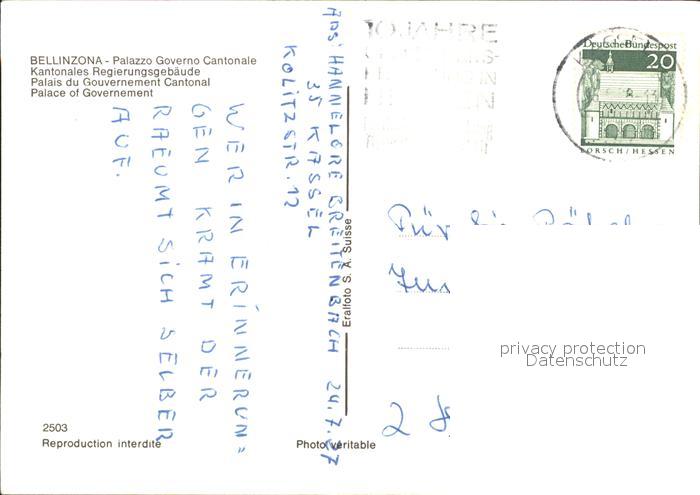 BELLINZONA - Palazzo Governo Cantonale
Kantonales Regierungsgebäude
Palais du Gouvernement Cantonal
Palace of Governement
ABS: HANNELORE BREITENBACH 24.7.
35 KASSEL
KOLITZSTR. 12
WER IN ERINNERUN=
GEN KRAMT DER
RAEUMT SICH SELBER
AUF.
2503
Reproduction interdite
Photo véritable
Eralfoto S. A. Suisse
10 JAHRE
Deutsche Bundespost
20
LORSCH/HESSEN
Für
privacy protection
Datenschutz
2 8